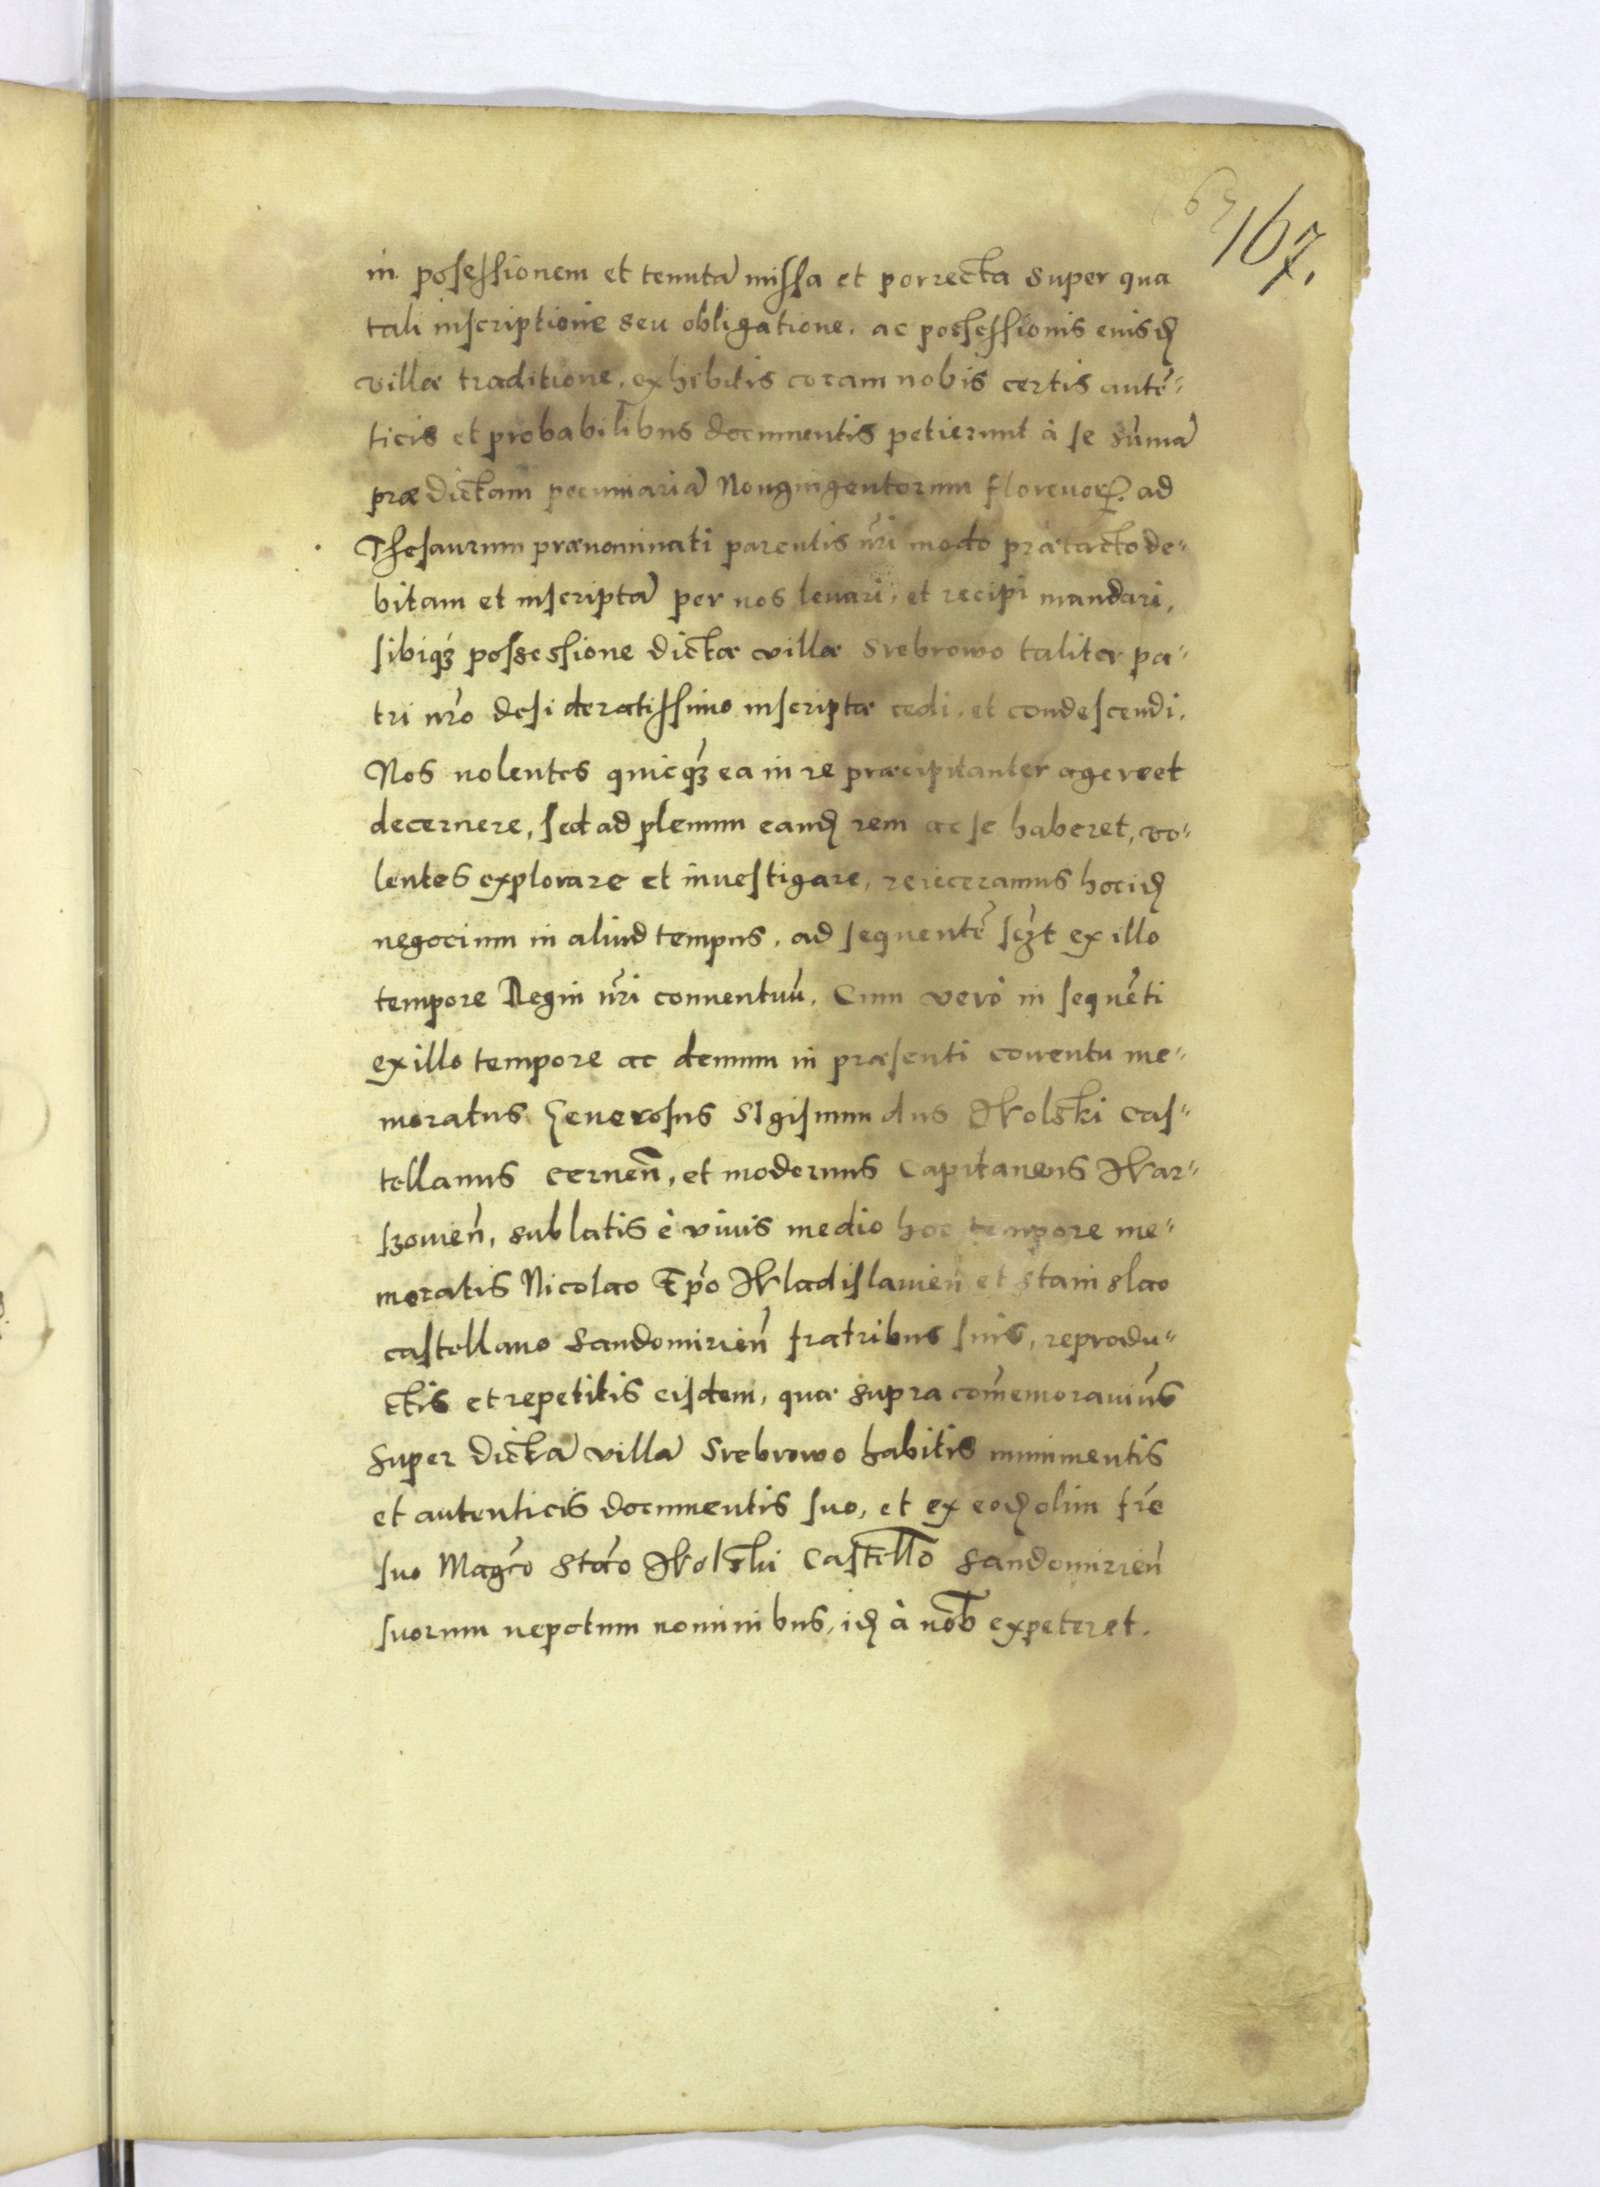 167.
in possessionem et tenutā missa et porrecta super qua
tali inscriptione seu obligatione, ac possessionis eiusđ
villæ traditione, exhibitis coram nobis certis autē-
ticis et probabilibus documentis petierunt à se sūmā
prædictam pecuniariā Nongingentorum florenoꝝ. ad
Thesaurum prænominati parentis nr̃i modo prætacto de-
bitam et inscriptā per nos leuari, et recipi mandari,
sibiqꝫ possessione dictæ villæ Srebrowo taliter pa-
tri nr̃o desideratissimo inscriptæ cedi, et condescendi.
Nos nolentes quicqꝫ ea in re præcipitanter agere et
decernere, sed ad plenum eanđ rem ac se haberet, vo-
lentes explorare et inuestigare, reieceramus hoc iđ
negocium in aliud tempus, ad sequentē scꝫt ex illo
tempore Regni nr̃i conuentum̄. Cum verò in sequēti
ex illo tempore ac demum in præsenti conentu me-
moratus Generosus Sigismundus Wolski Cas-
tellanus Cerneñ, et modernus Capitaneus War-
szouieñ, sublatis è viuis medio hoc tempore me-
moratis Nicolao Ep̃o Wladislauieñ et Stanislao
castellano Sandomirieñ fratribus suis, reprodu-
ctis et repetitis eisdem, quæ supra com̄emorauim̃us
super dictā villā Srebrowo habitis munimentis
et autenticis documentis suo, et ex eođ olim fr̃e
suo Magc̃o Stã́o Wolski Castell̃o Sandomirieñ
suorum nepotum nominibus, iđ à nob̃ expeteret.